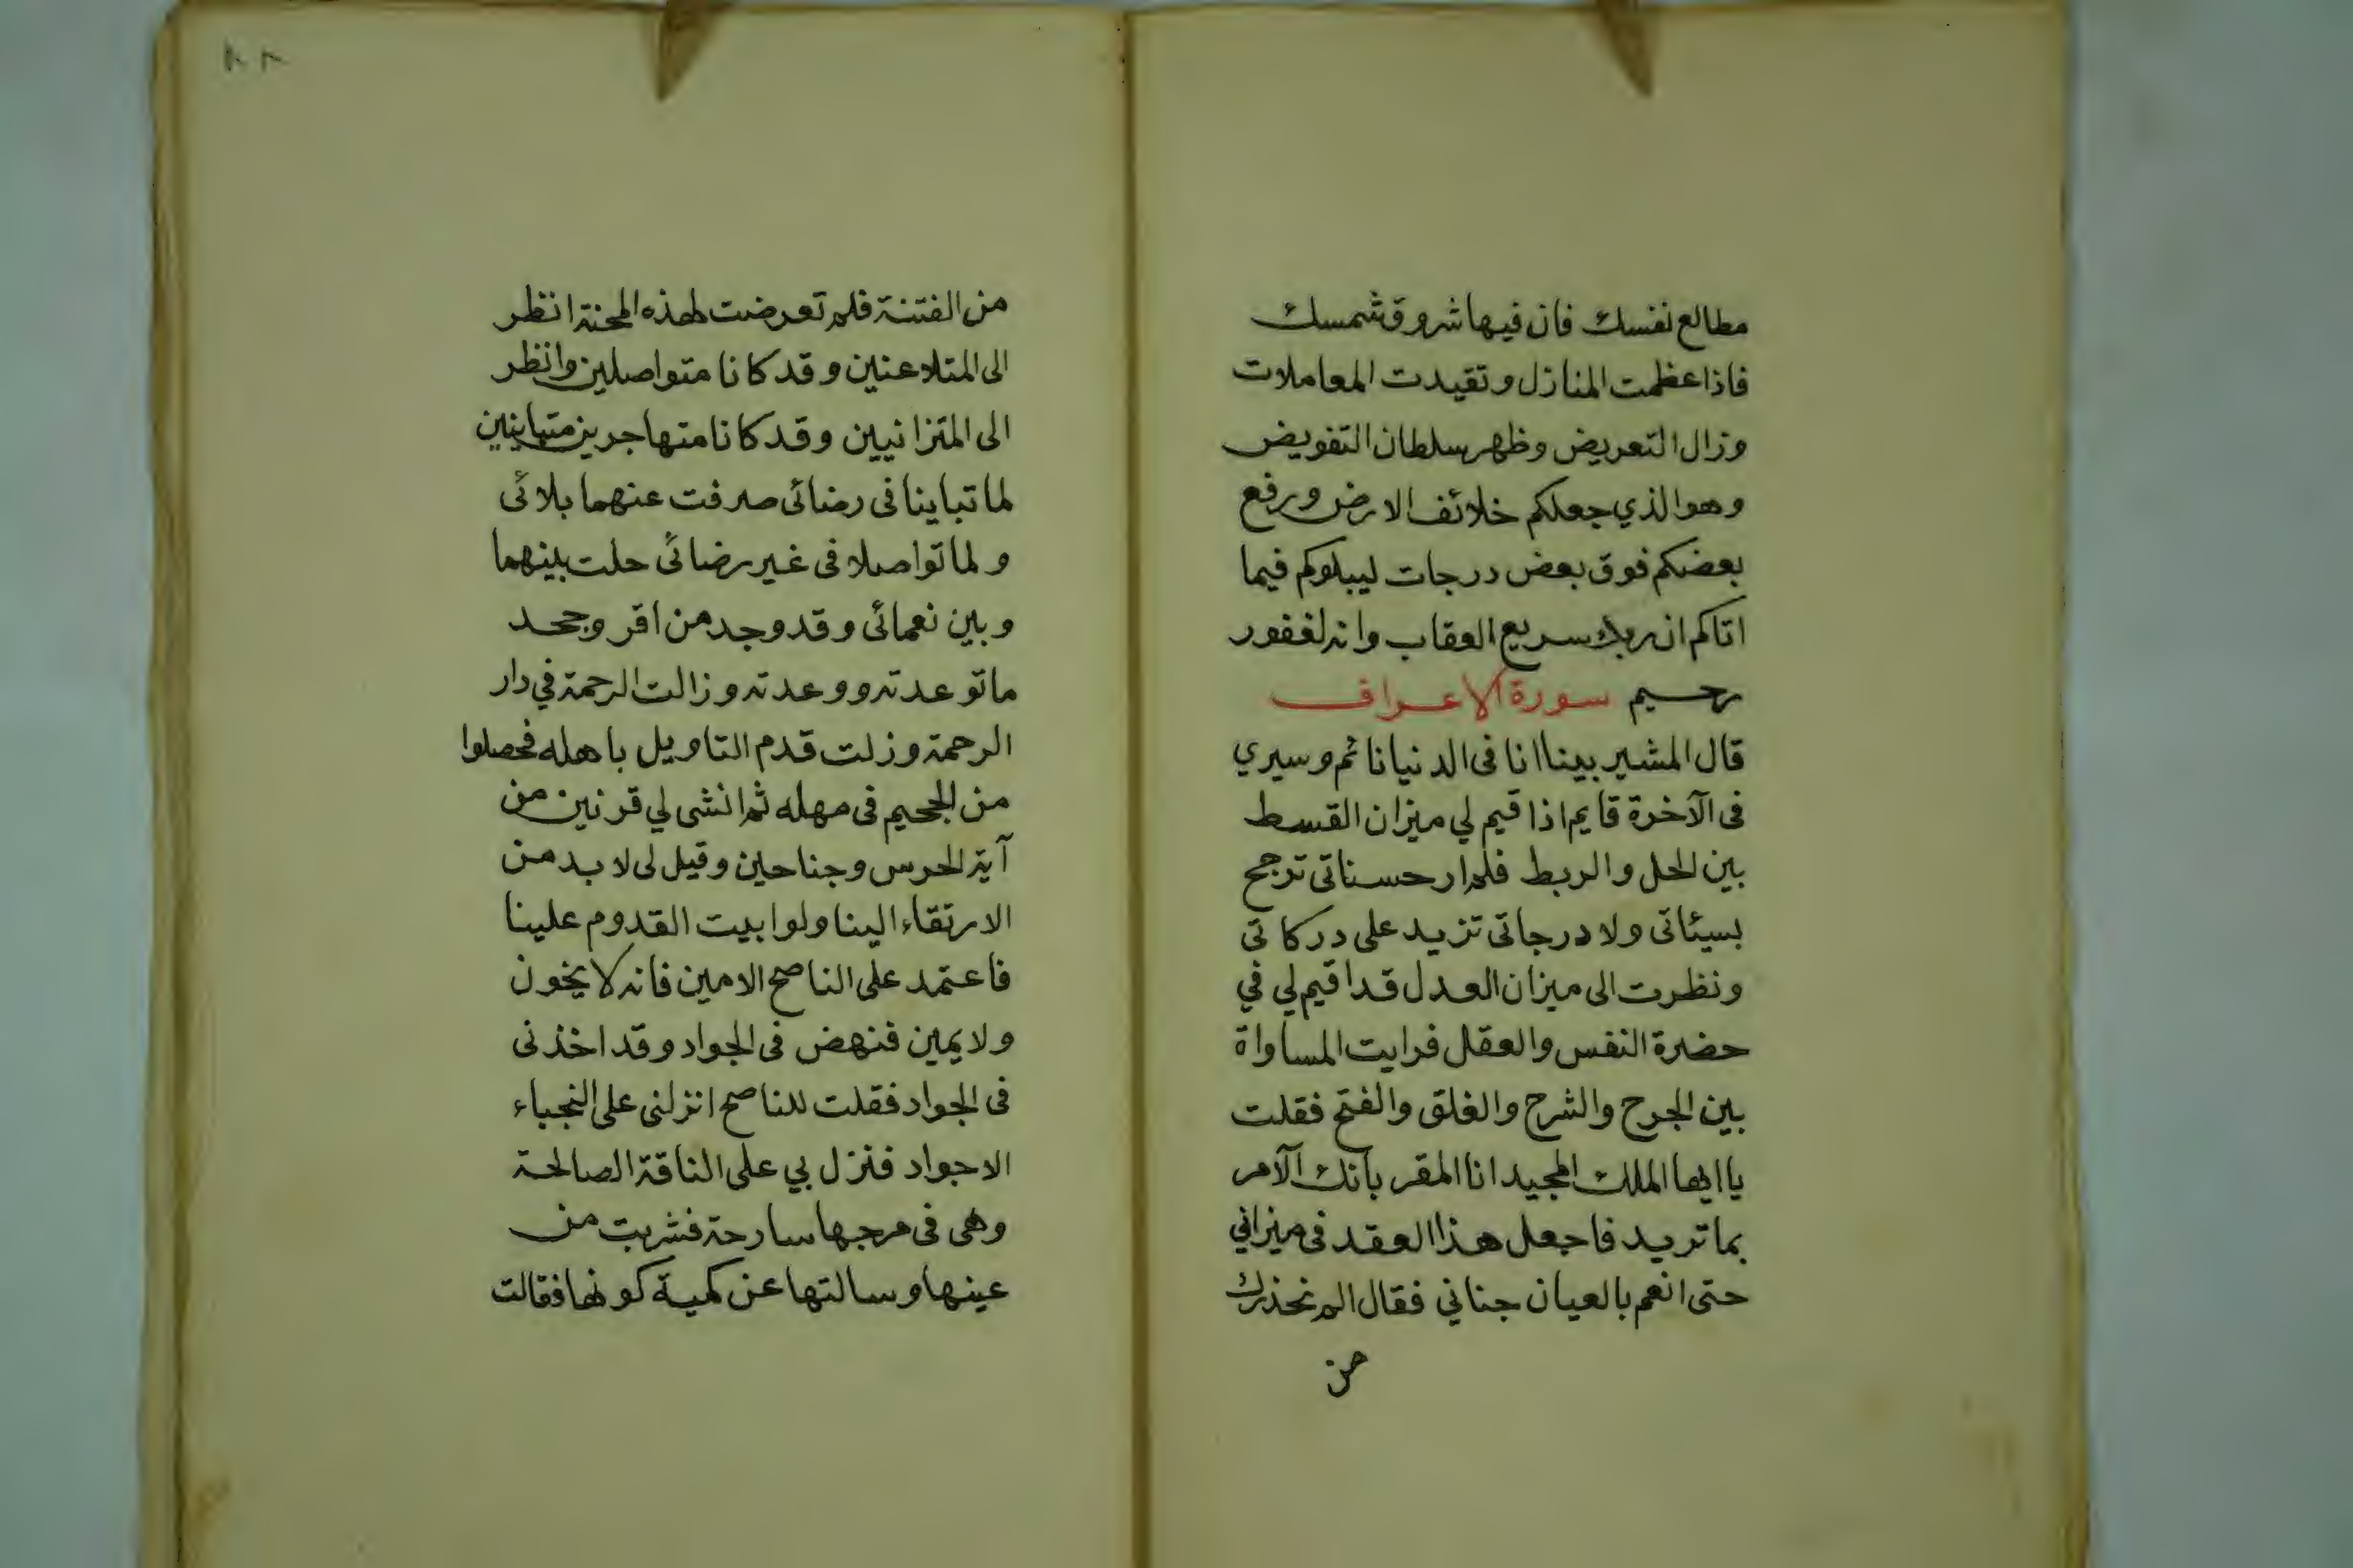 مطالع نفسك فان فيها شروق شمسك
فاذا عظمت المنازل وتقيدت المعاملات
وزال التعريض وظهر سلطان التفويض
وهو الذي جعلكم خلائف الارض ورفع
بعضكم فوق بعض درجات ليبلوكم فيما
اتاكم ان ربك سريع العقاب وانه لغفور
رحيم سورة الاعراف
قال المشير بينا انا فى الدنيا نائم وسيري
فى الآخرة قايم اذا قيم لي ميزان القسط
بين الحل والربط فلم ار حسناتى ترجح
بسيئاتى ولا درجاتى تزيد على دركاتى
ونظرت الى ميزان العدل قد اقيم لي في
حضرة النفس والعقل فرايت المساواة
بين الجرح والشرح والغلق والفتح فقلت
يا ايها الملك المجيد انا المقر بانك الآمر
بما تريد فاجعل هذا العقد فى ميزاني
حتى انعم بالعيان جناني فقال الم نحذرك
من
٨٢
من الفتنة فلم تعرضت لهذه المحنة انظر
الى المتلاعنين وقد كانا متواصلين وانظر
الى المتزانيين وقد كانا متهاجرين متباينين
لما تباينا فى رضائى صرفت عنهما بلائى
ولما تواصلا فى غير رضائى حلت بينهما
وبين نعمائى وقد وجد من اقر وجحد
ما توعدته ووعدته وزالت الرحمة في دار
الرحمة وزلت قدم التاويل باهله فحصلوا
من الجحيم فى مهله ثم انشى لي قرنين من
آية الحرس وجناحين وقيل لى لا بد من
الارتقاء الينا ولو ابيت القدوم علينا
فاعتمد على الناصح الامين فانه لا يخون
ولا يمين فنهض فى الجواد وقد اخذنى
فى الجواد فقلت للناصح انزلنى على النجباء
الاجواد فنزل بي على الناقة الصالحة
وهى فى مرجها سارحة فشربت من
عينها وسالتها عن كمية كونها فقالت